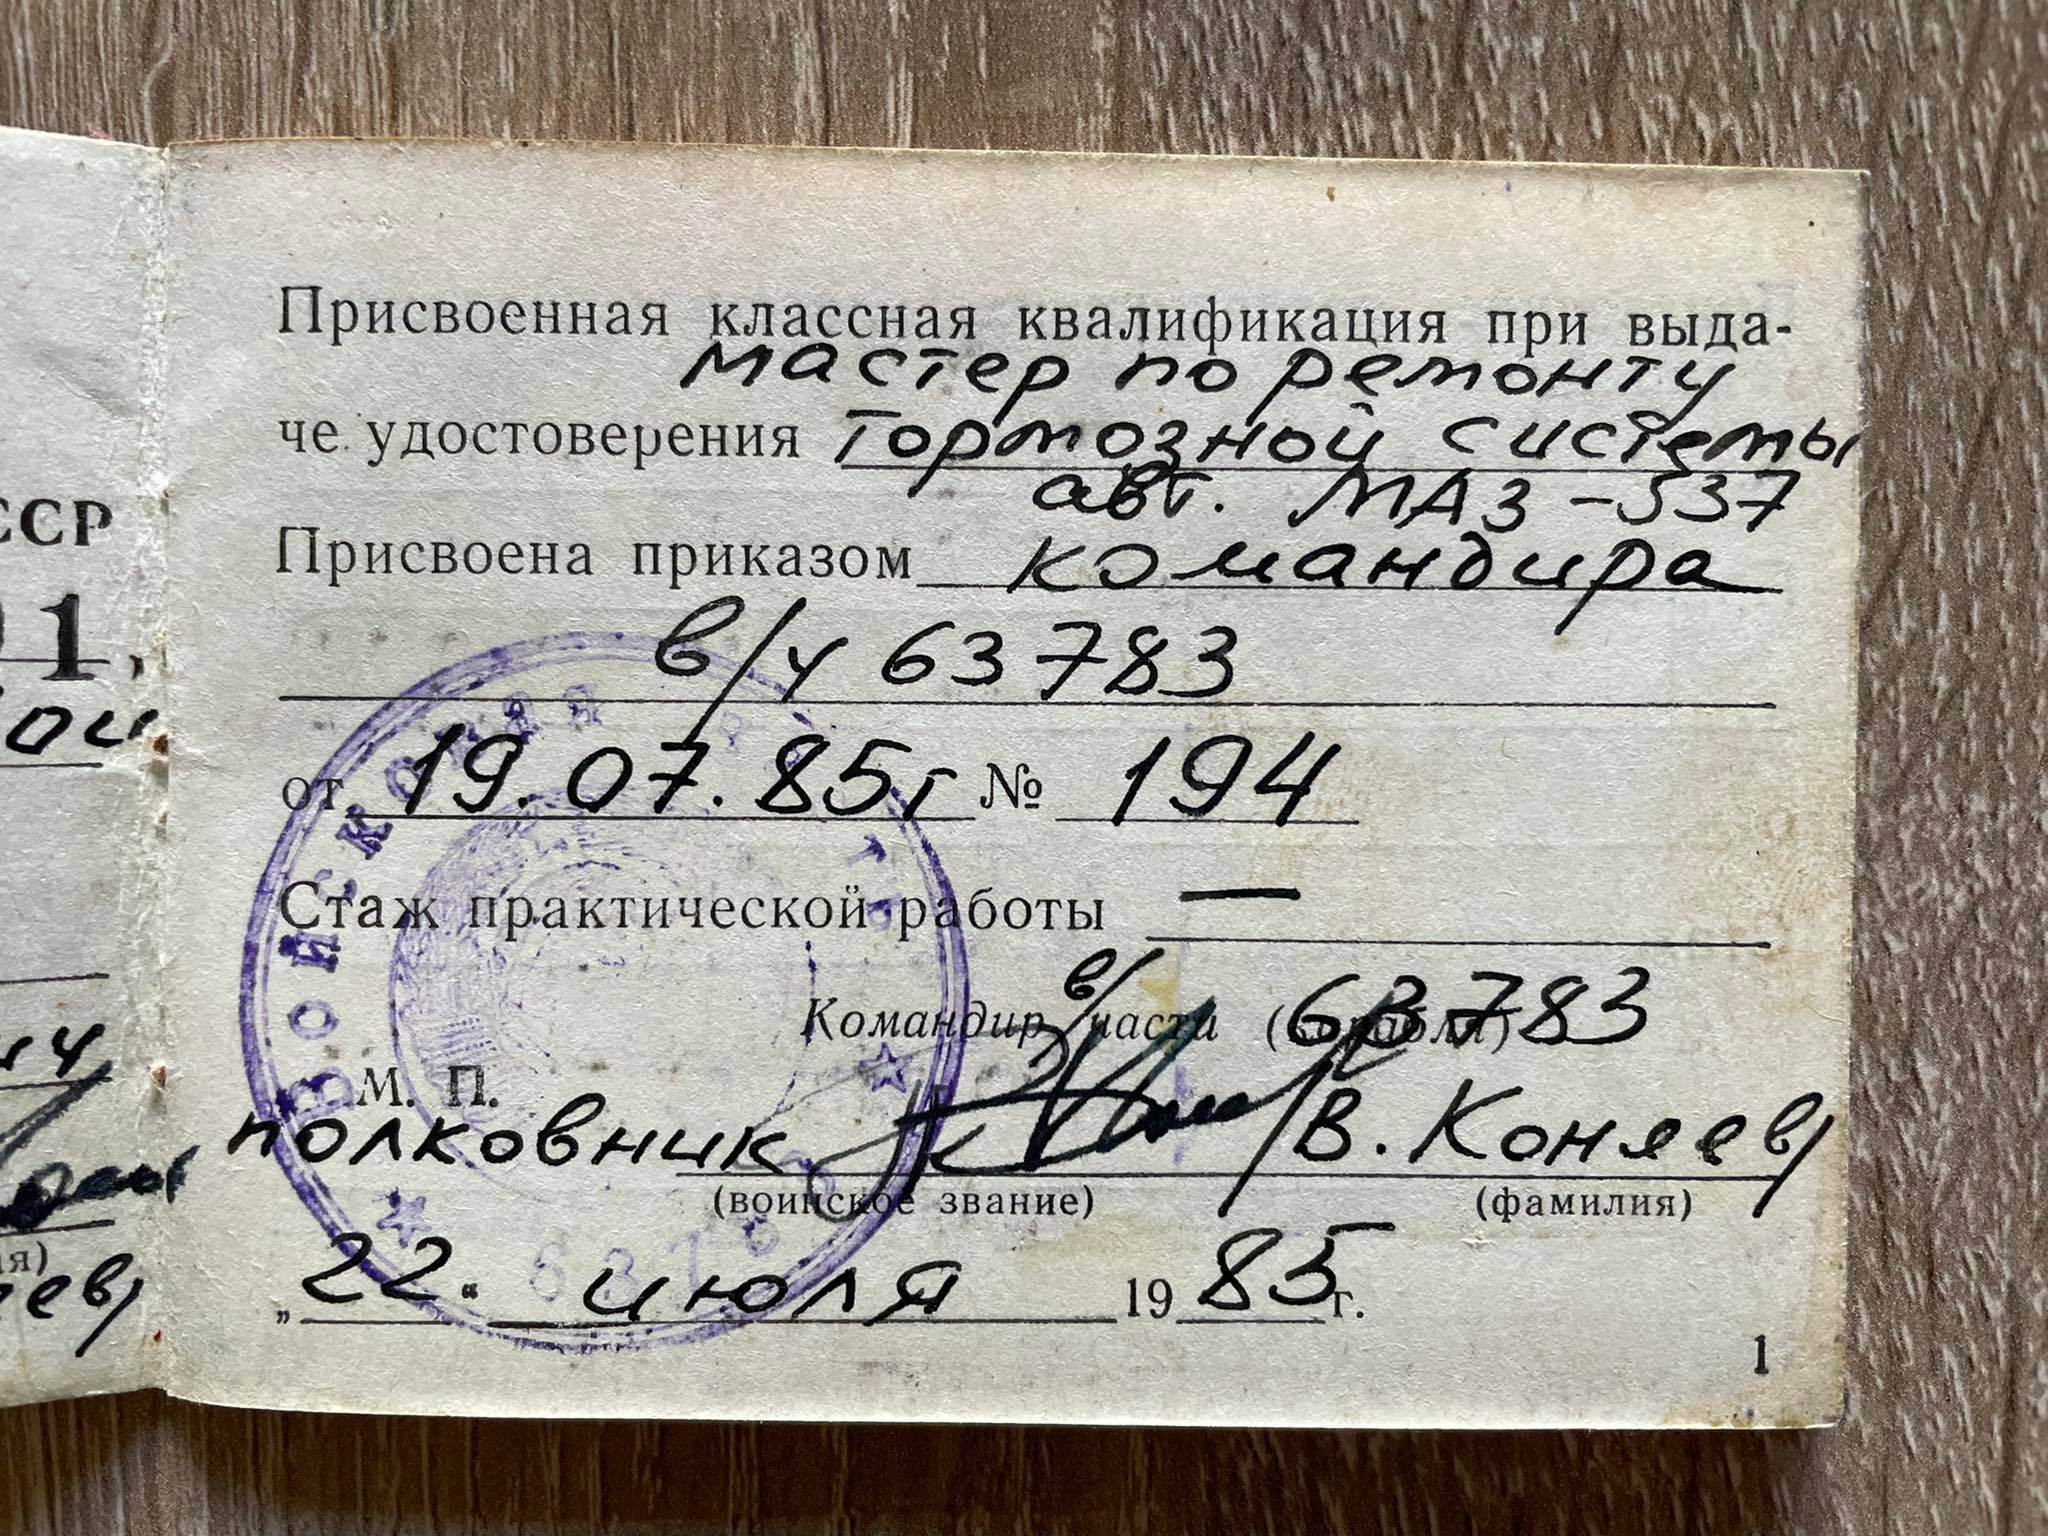 ССР
1,
Присвоенная классная квалификация при выда-
мастер по ремонту
че удостоверения тормозной системы
авт. МАЗ-537
Присвоена приказом командира
в/ч 63783
от 19.07.85г № 194
Стаж практической работы —
в/ 63783
Командир части (корабля)
М. П.
полковник /В. Коняев/
(воинское звание) (фамилия)
„22“ июля 1985 г.
1